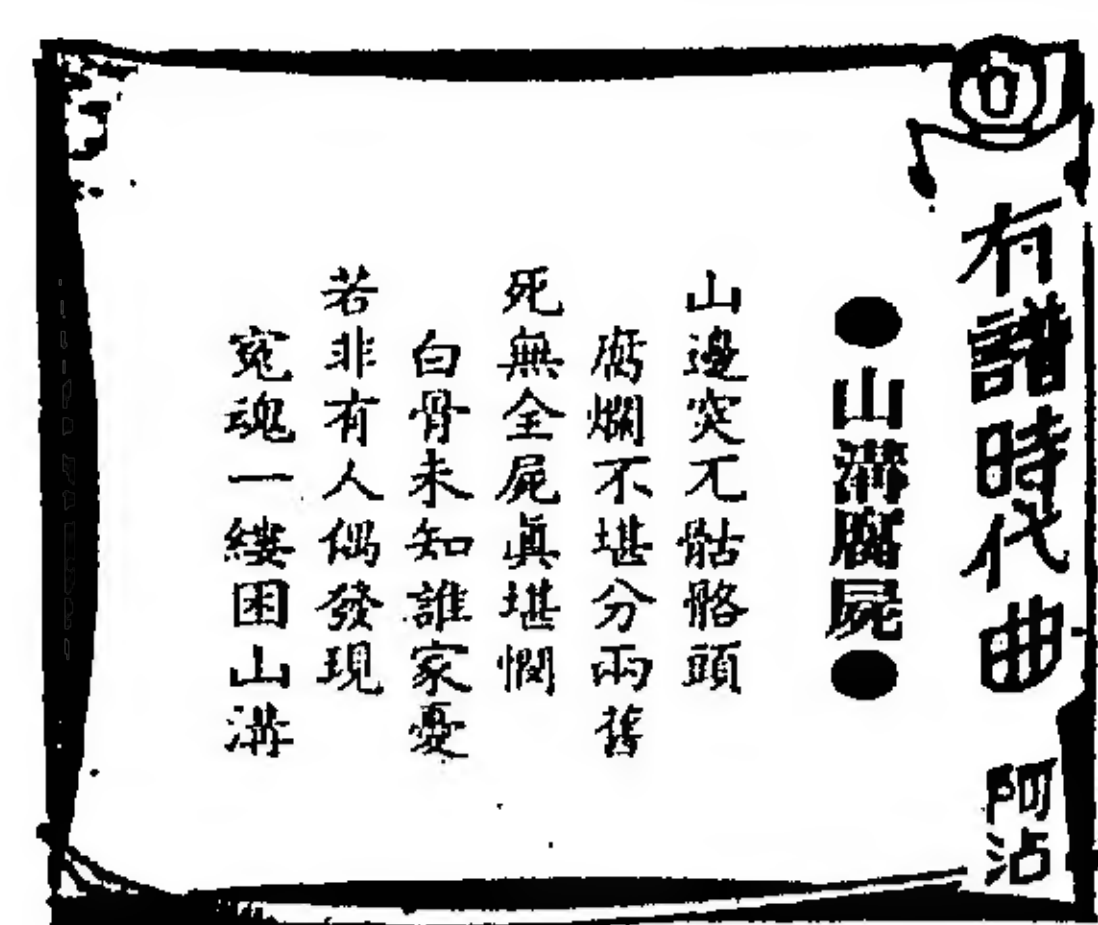 冇譜時代曲
阿沾
●山溝腐屍●
山邊突兀骷骼頭
腐爛不堪分兩舊
死無全屍眞堪憫
白骨未知誰家憂
若非有人偶發現
寃魂一縷困山溝